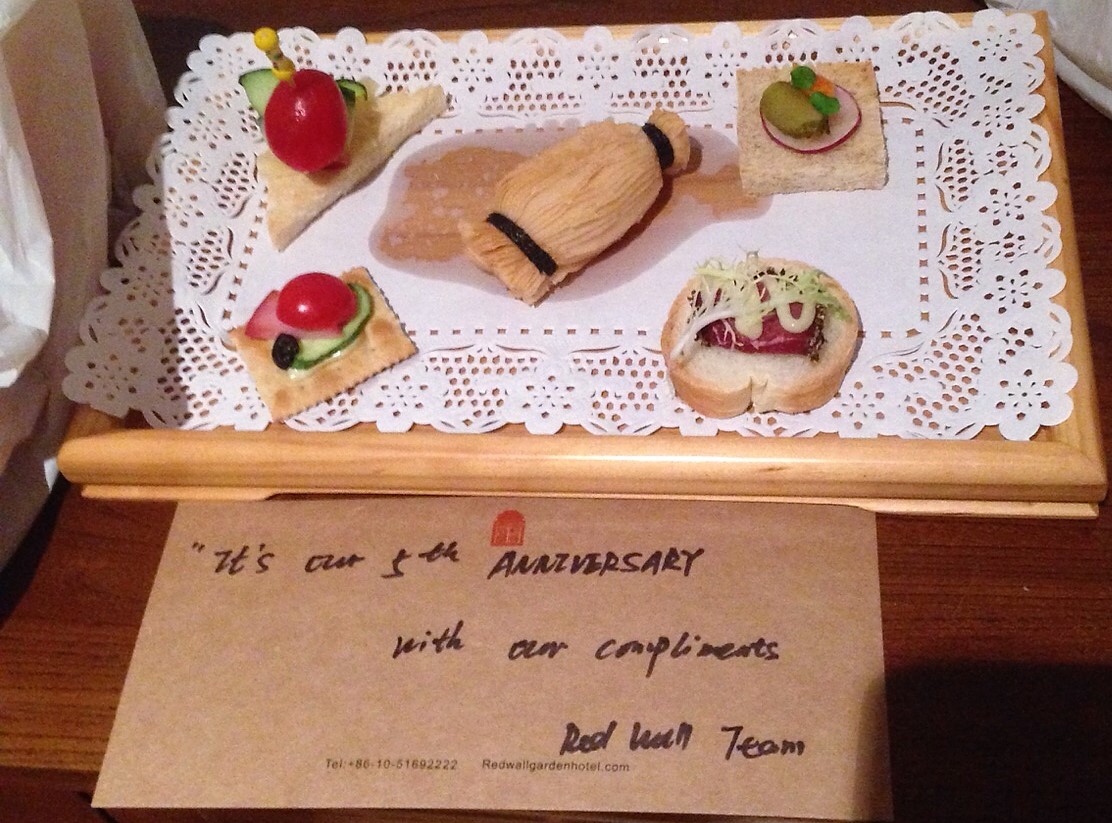 "It's our 5th ANNIVERSARY
with our compliments
Red Wall Team
Tel:+86-10-51692222 Redwallgardenhotel.com